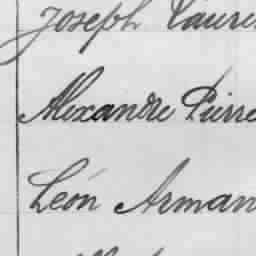 Joseph Laure
Alexandre Pierre
Léon Arman